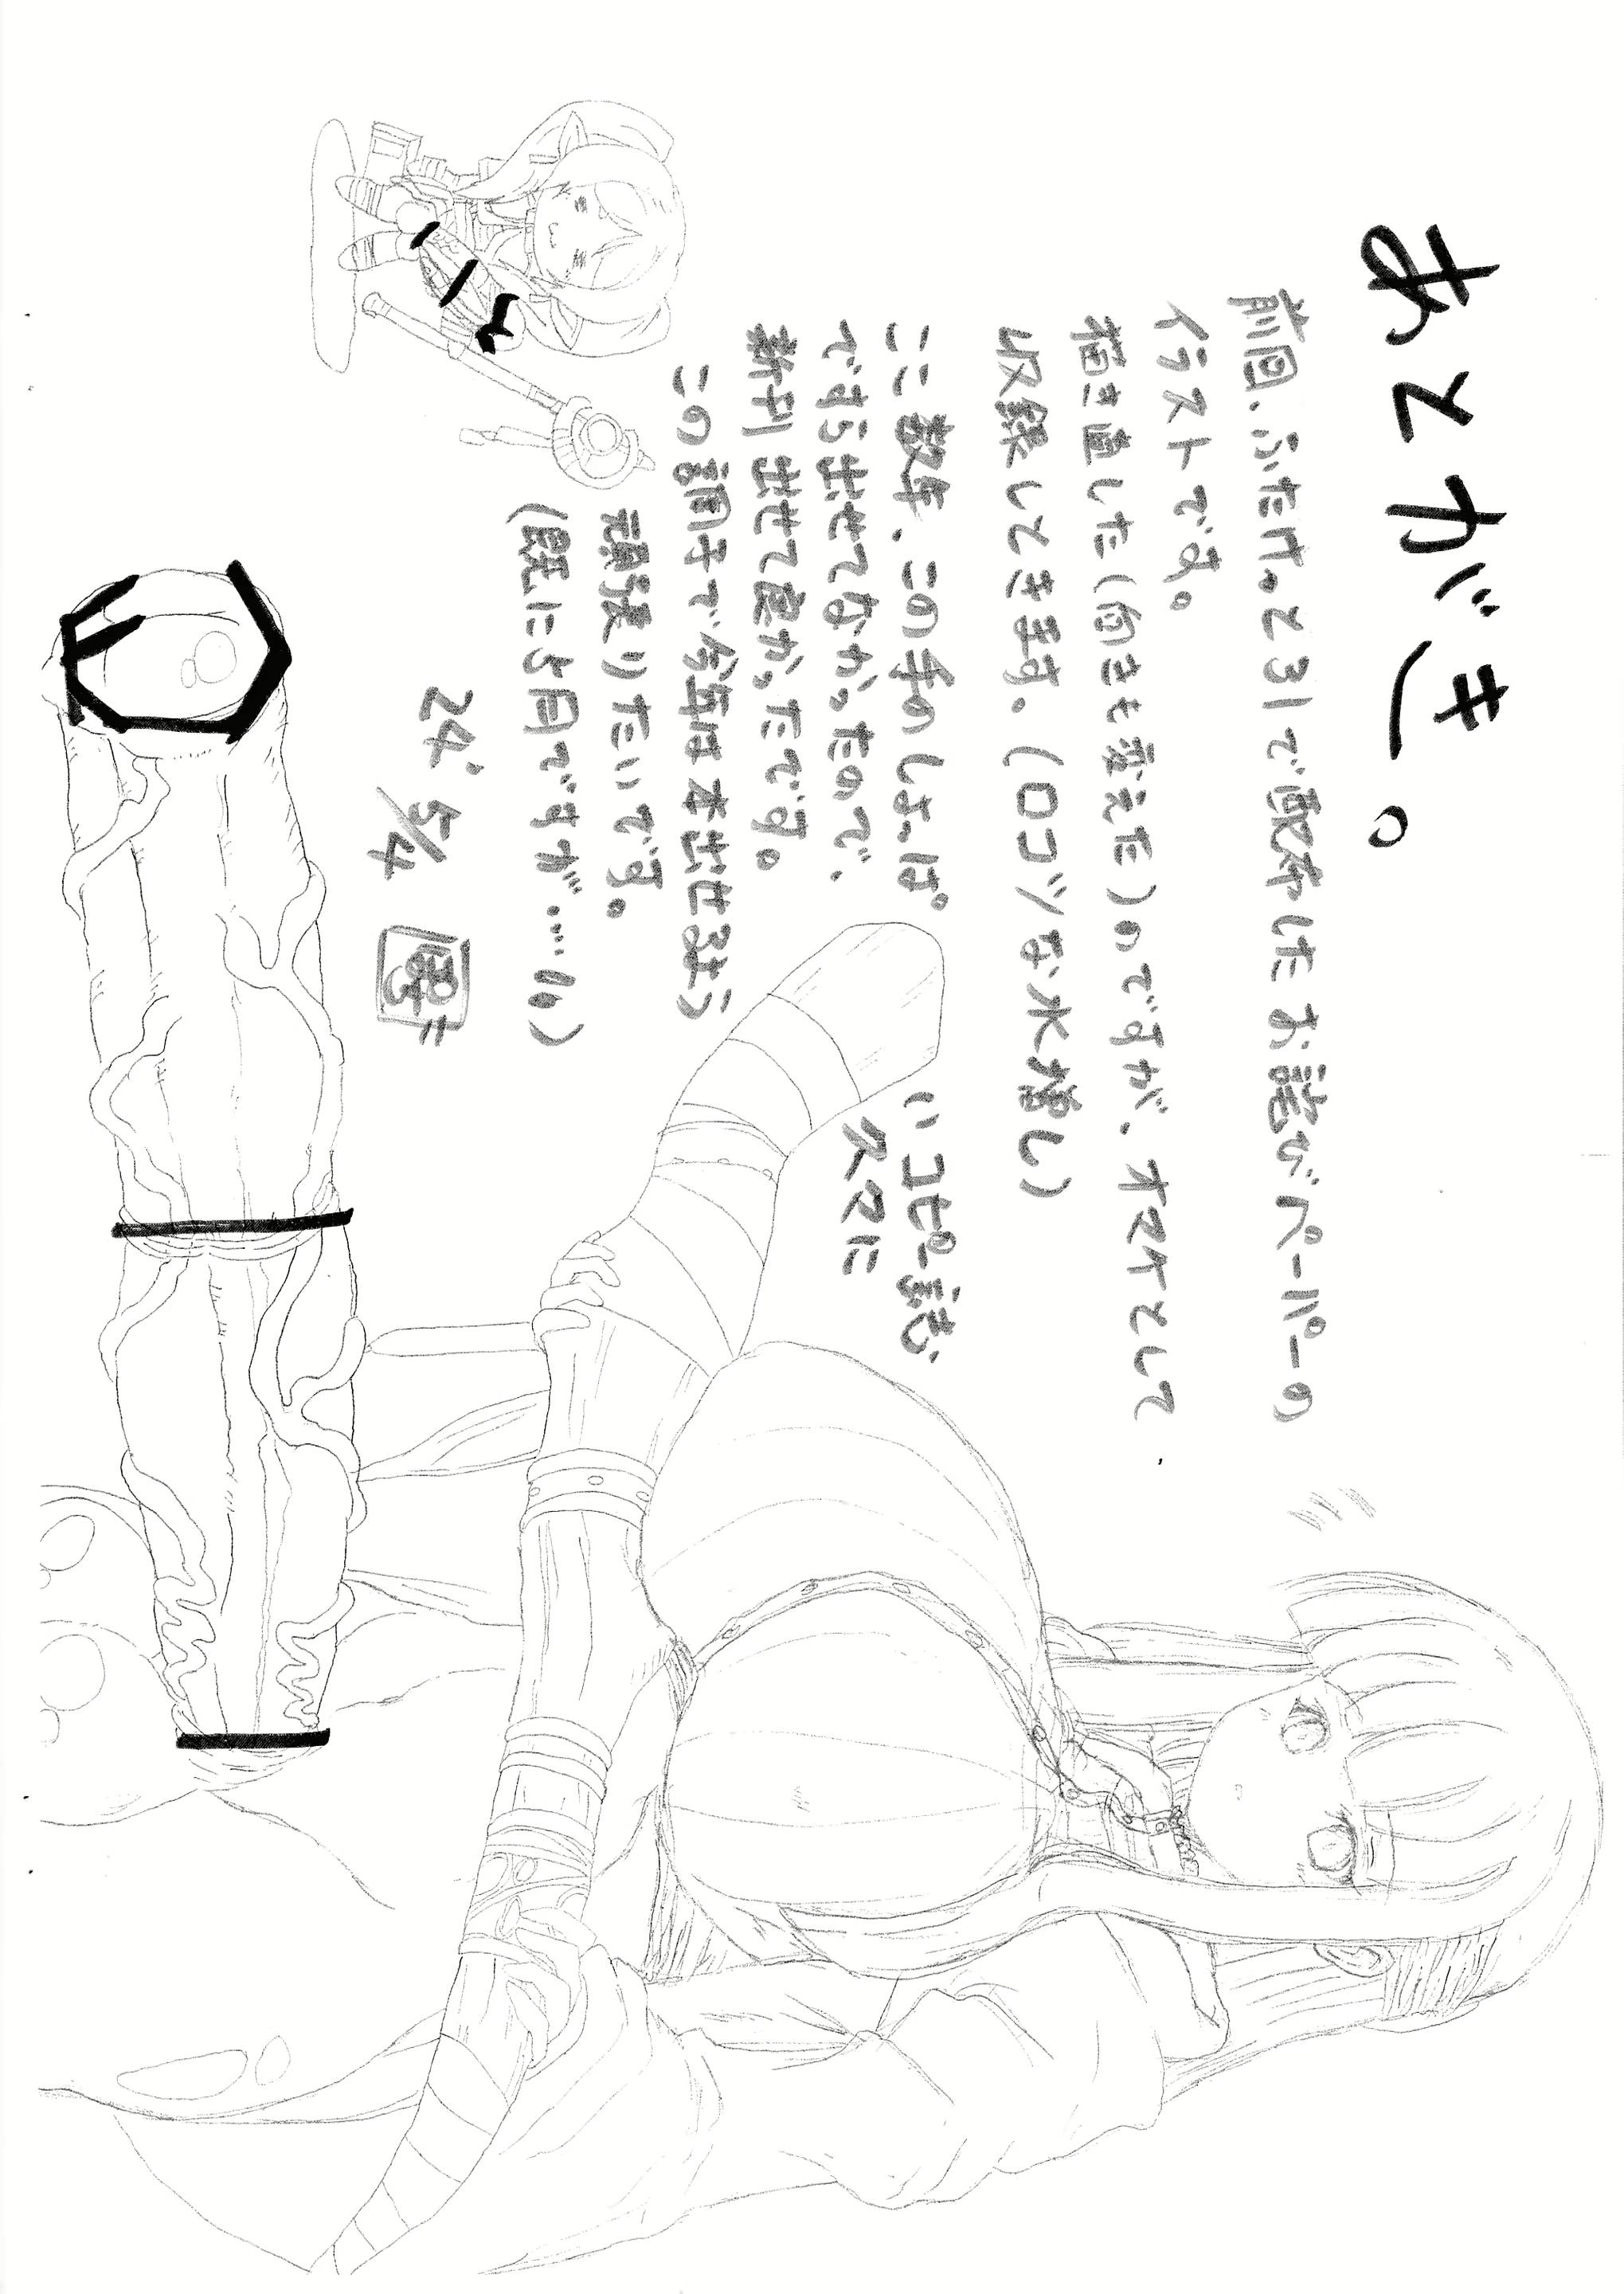 あとがき。
前回、ふたけっと31で頒布したお詫びペーパーの
イラストです。
描き直した(向きも変えた)のですが、オマケとして
収録しときます。(ロコツな水増し)
ここ数年、この手のしょっぱいコピー誌
ですら出せてなかったので、久々に
新刊出せて良かったです。
この調子で今年は本出せるよう
頑張りたいです。
(既に5月ですが…!!)
24' 5/4